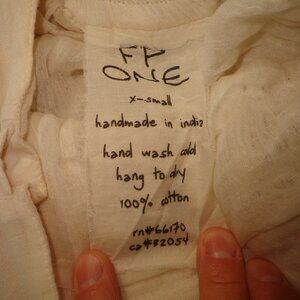 FP
ONE
x-small
handmade in india
hand wash cold
hang to dry
100% cotton
rn#66170
ca#32054